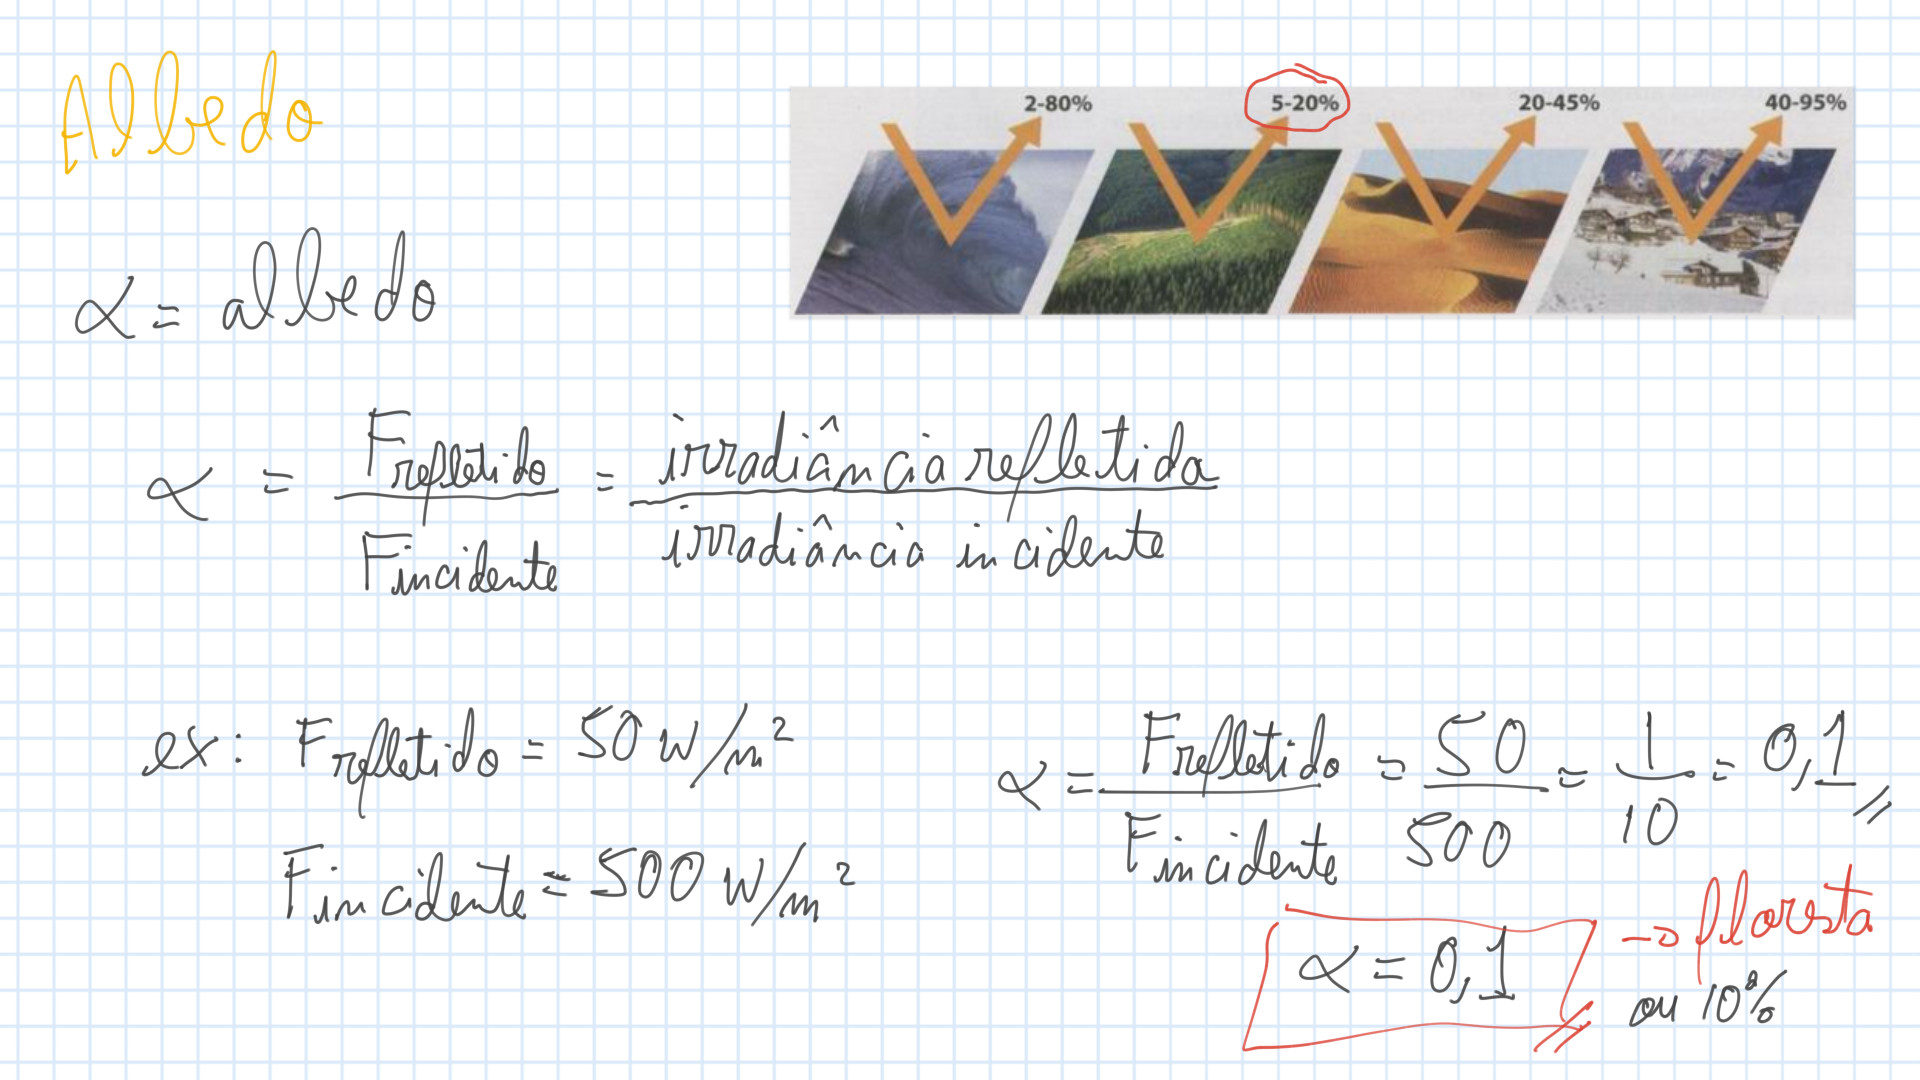 Albedo
2-80% 5-20% 20-45% 40-95%
α = albedo
α = Frefletido / Fincidente = irradiância refletida / irradiância incidente
ex: Frefletido = 50 W/m²
Fincidente = 500 W/m²
α = Frefletido / Fincidente = 50 / 500 = 1 / 10 = 0,1
α = 0,1 → floresta
ou 10%